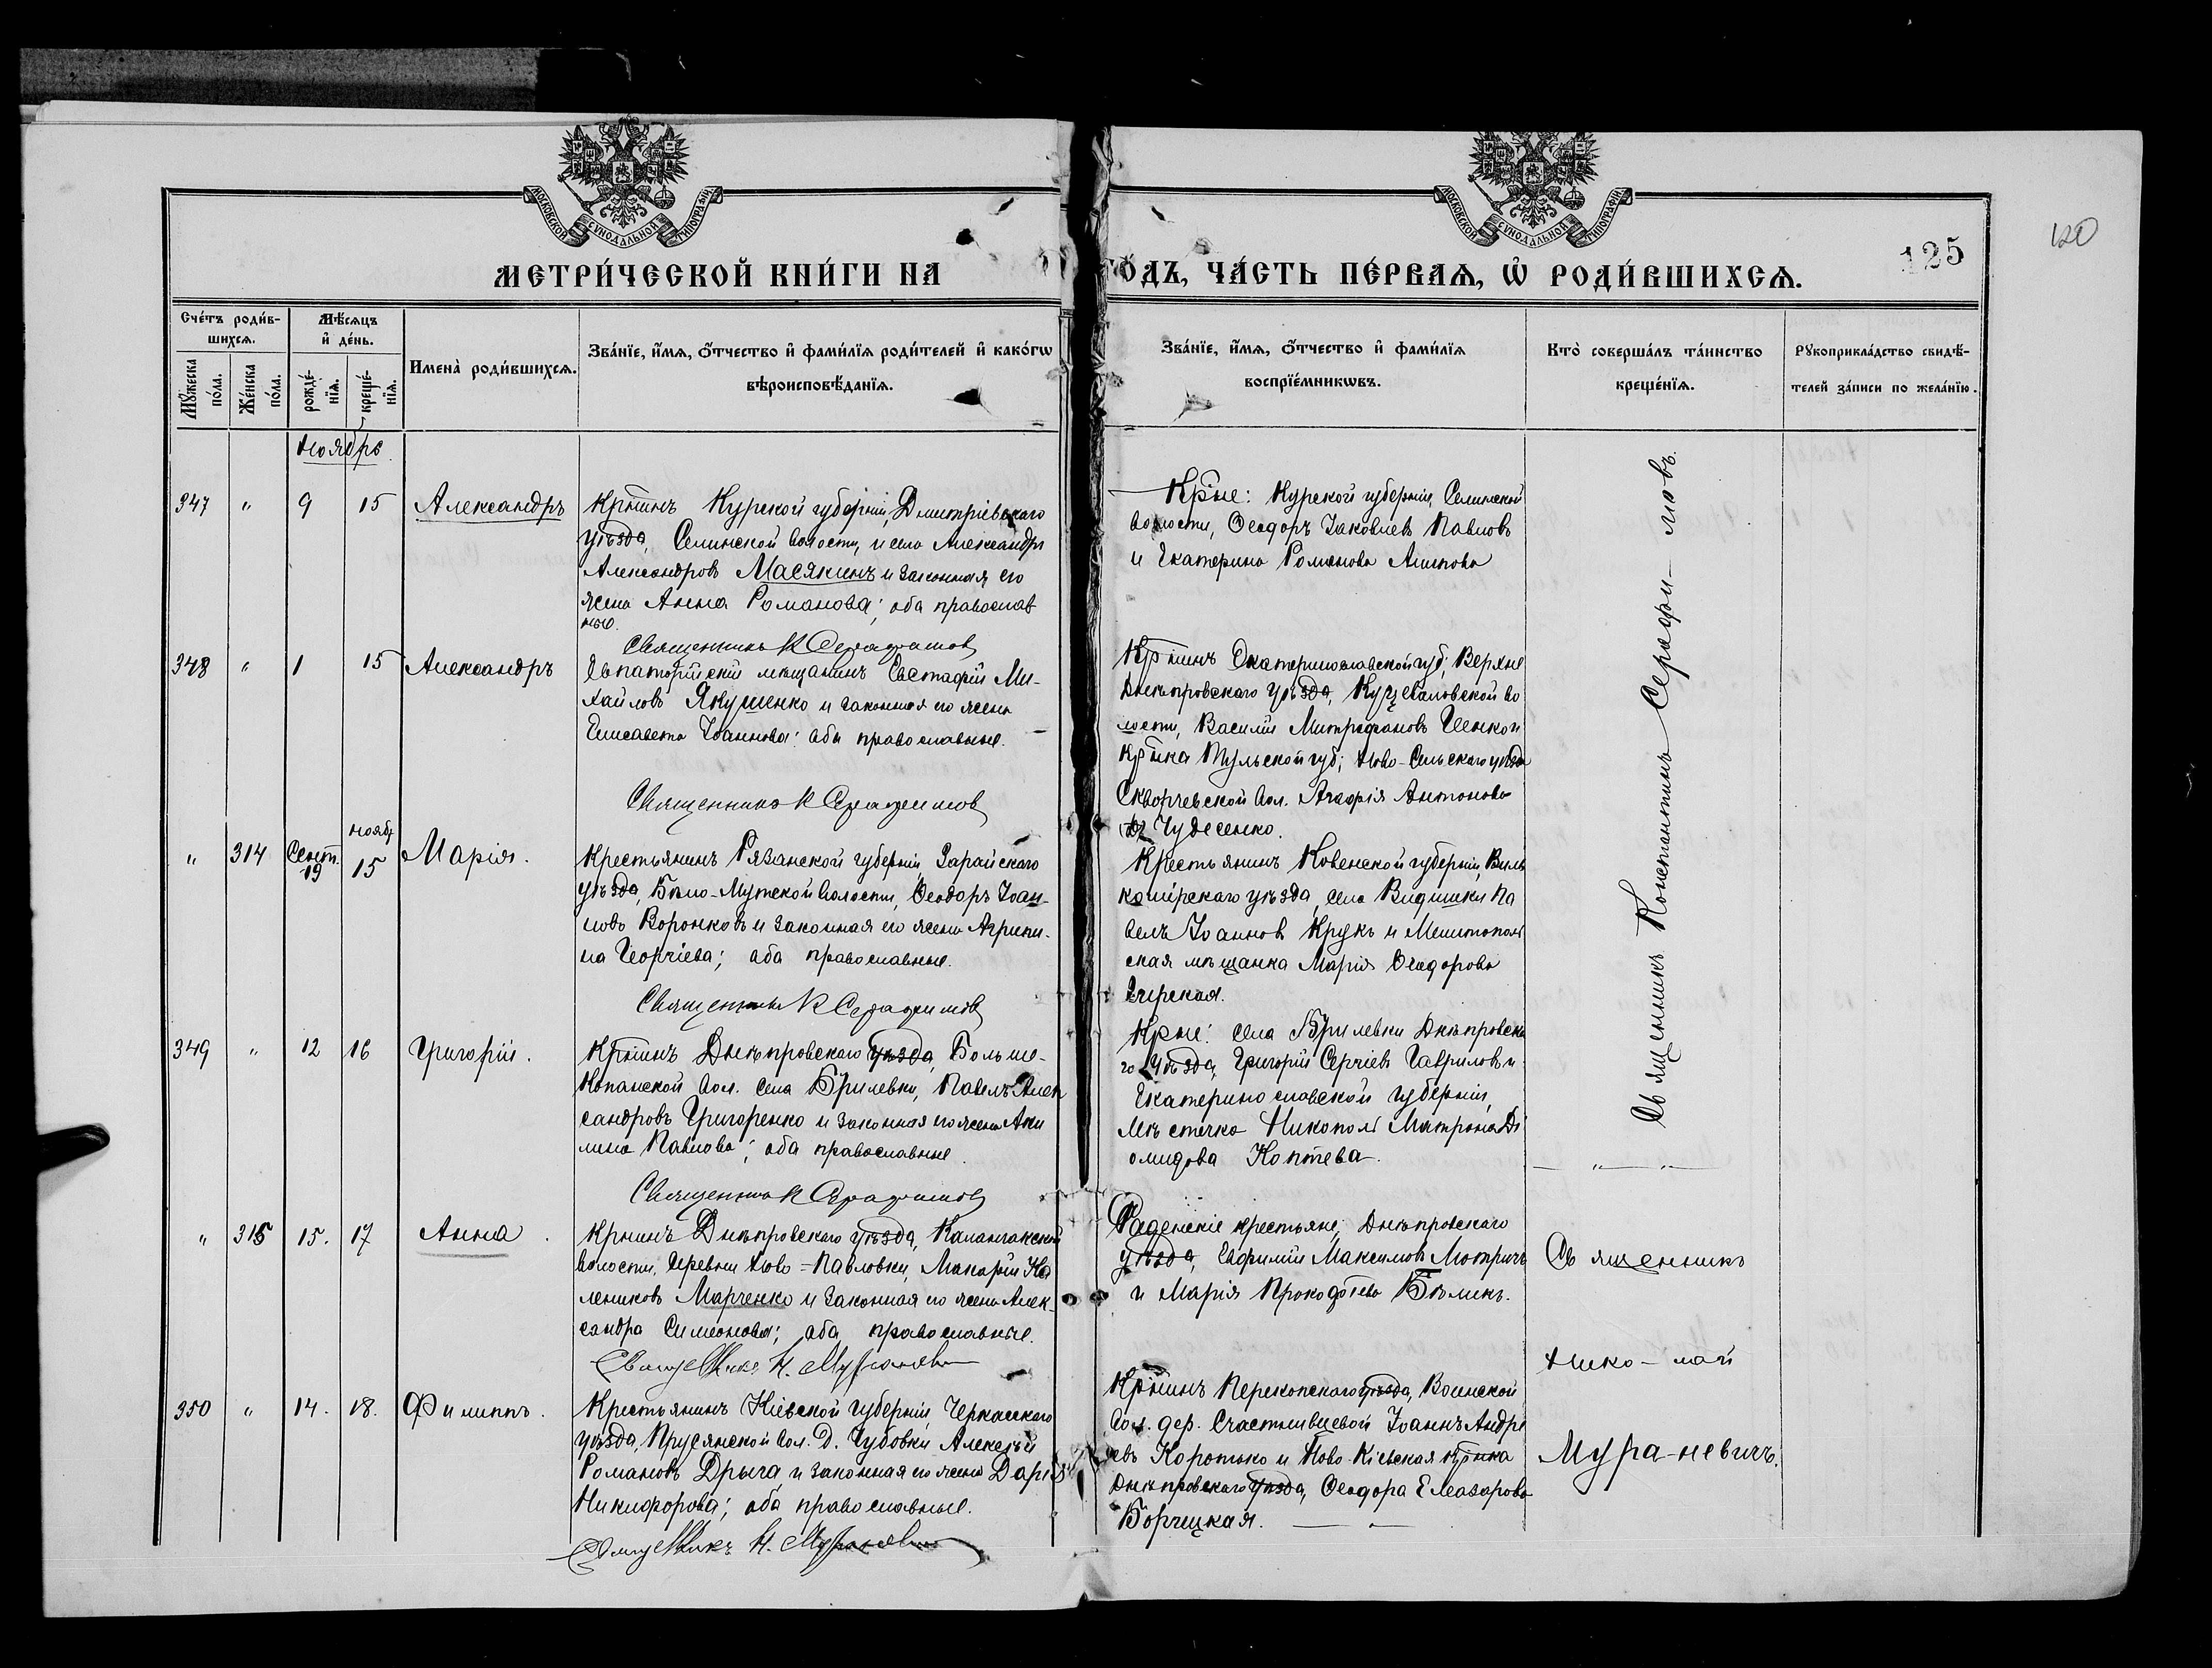 МОСКОВСКОЙ СѴНОДАЛЬНОЙ ТИПОГРАФІИ
МОСКОВСКОЙ СѴНОДАЛЬНОЙ ТИПОГРАФІИ
120
125
МЕТРИ́ЧЕСКОЙ КНИ́ГИ НА
ГО́ДЪ, ЧА́СТЬ ПЕ́РВАѦ, Ѡ҆ РОДИ́ВШИХСѦ.
Сче́тъ роди́в-
шихсѧ.
Мꙋ́жеска по́ла.
Же́нска по́ла.
Мѣ́сѧцъ
и҆ де́нь.
рожде́-
нїѧ.
креще́-
нїѧ.
Имена̀ роди́вшихсѧ.
Зва́нїе, и҆́мѧ, ѻ҆́тчество и҆ фами́лїѧ роди́телей и҆ како́гѡ
вѣроисповѣ́данїѧ.
Зва́нїе, и҆́мѧ, ѻ҆́тчество и҆ фами́лїѧ
воспрїе́мникѡвъ.
Кто̀ соверша́лъ та́инство
креще́нїѧ.
Рꙋкоприкла́дство свидѣ́-
телей за́писи по жела́нїю.
Ноябрь
347 " 9 15 Александръ
Кр̃тинъ Курской губерніи, Дмитріевскаго
уѣзда, Селинской волости, и села Александръ
Александровъ Масякинъ и законная его
жена Анна Романова; оба православ
ные.
Священникъ К Серафимов
Кр̃не: Курской губерніи, Селинской
волости, Ѳеодоръ Іаковлевъ Павловъ
и Екатерина Романова
348 " 1 15 Александръ
Евпаторійскій мѣщанинъ Евстафій Ми-
хайловъ Якушенко и законная его жена
Елисавета Іоаннова: оба православные.
Священникъ К Серафимов
Кр̃тинъ Екатеринославской губ; Верхне
Днѣпровскаго уѣзда, во
лости, Василій Митрофановъ
кр̃тка Тульской губ; Ново-Сильскаго уѣзда
Скворчевской вол. Агафія Антонова
Чудесенко.
" 314 Сент. 19 Нояб 15 Марія.
Крестьянинъ Рязанской губерніи, Зарайскаго
уѣзда, Бѣло-Мутской волости, Ѳеодоръ Іоан-
новъ Воронковъ и законная его жена Агрипи-
на Георгіева; оба православные.
Священникъ К Серафимов
Крестьянинъ Ковенской губерніи, Виль
комірскаго уѣзда, села Видишки Па
велъ Іоанновъ Крукъ и Мелитополь
ская мѣщанка Марія Ѳеодорова
349 " 12 16 Григорій.
Кр̃тинъ Днѣпровскаго уѣзда, Больше-
Копанской вол. села Брилевки, Павелъ Алек
сандровъ Григоренко и законная его жена Аки
лина Павлова; оба православные.
Священник К Серафимов
Кр̃не: села Брилевки Днѣпровска
го уѣзда, Григорій Сергіевъ Гавриловъ и
Екатеринославской губерніи,
мѣстечка Никополь Матрона Ді
омидова Коптева.
Священникъ Константинъ Серафи-мовъ.
" 315 15. 17 Анна.
Кр̃нинъ Днѣпровскаго уѣзда, Каланчакской
волости, деревни Ново=Павловки, Макарій Ка
лениковъ Марченко и законная его жена Алек-
сандра Симеонова; оба православные.
Священникъ Н. Мураневич
Раденскіе крестьяне, Днѣпровскаго
уѣзда, Евфимій Максимовъ Мотричъ
и Марія Прокофіева Бѣликъ.
350 " 14. 18. Филиппъ.
Крестьянинъ Кіевской губерніи, Черкасскаго
уѣзда, Прусянской вол. д. Чубовки Алексѣй
Романовъ Дрыга и законная его жена Дарія
Никифорова; оба православные.
Священникъ Н. Мураневич
Кр̃тинъ Перекопскаго уѣзда, Воинской
вол. дер. Счастливцевой Іоаннъ Андре
евъ Коротько и Ново-Кіевская кр̃тка
Днѣпровскаго уѣзда, Ѳеодора Елеазарова
Борчицкая.
Священникъ
Нико-лай
Мура-невичъ.